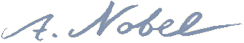 A. Nobel